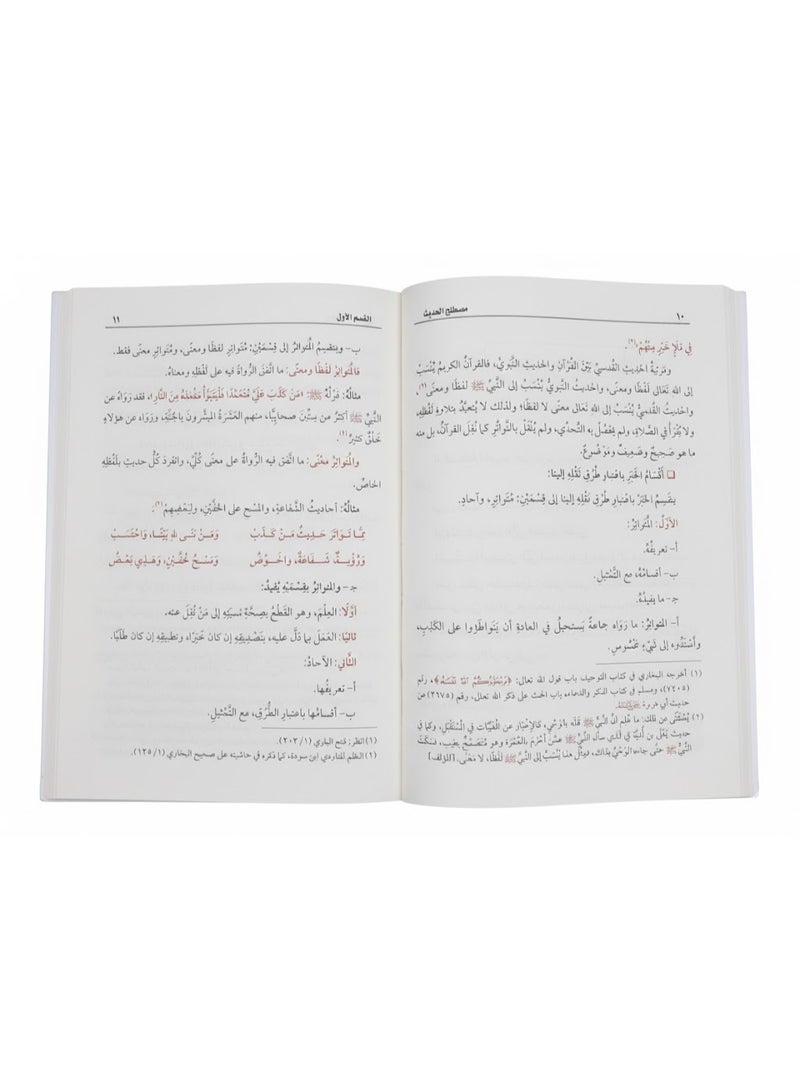 ١٠ مصطلح الحديث
فِي مَلَإٍ خَيْرٍ مِنْهُمْ»(١).
ومَرتبةُ الحديثِ القدسيِّ بَيْنَ القُرْآنِ والحديثِ النَّبَويِّ، فالقرآنُ الكريمُ يُنْسَبُ
إلى اللهِ تعالى لَفْظًا ومعنًى، والحديثُ النَّبويُّ يُنْسَبُ إلى النَّبيِّ ﷺ لفظًا ومعنًى(٢)،
والحديثُ القُدسيُّ يُنْسَبُ إلى اللهِ تعالى معنًى لا لفظًا؛ ولذلك لا يُتَعَبَّدُ بتلاوةِ لَفْظِهِ،
ولا يُقْرَأُ في الصَّلاةِ، ولم يَحْصُلْ به التَّحدِّي، ولم يُنْقَلْ بالتَّواتُرِ كما نُقِلَ القرآنُ، بل منه
ما هو صَحيحٌ وضعيفٌ ومَوْضوعٌ.
❑ أَقْسَامُ الخَبَرِ باعْتِبارِ طُرُقِ نَقْلِهِ إلينا:
ينقسِمُ الخَبَرُ باعتبارِ طُرُقِ نَقْلِهِ إلينا إلى قِسْمَيْنِ: مُتَوَاتِرٍ، وآحادٍ.
الأوَّلُ: المُتَوَاتِرُ:
أ- تعريفُهُ.
ب- أقسامُهُ، مع التَّمْثيلِ.
جـ- ما يفيدُهُ.
أ- المُتواتِرُ: ما رَوَاه جماعةٌ يَستحيلُ في العادةِ أن يَتَوَاطَؤُوا على الكَذِبِ،
وأَسْنَدُوه إلى شَيْءٍ مَحْسُوسٍ.
(١) أخرجه البخاري في كتاب التوحيد، باب قول الله تعالى: ﴿وَيُحَذِّرُكُمُ اللَّهُ نَفْسَهُ﴾، رقم
(٧٤٠٥)، ومسلم في كتاب الذكر والدعاء، باب الحث على ذكر الله تعالى، رقم (٢٦٧٥) من
حديث أبي هريرة
(٢) يُسْتَثْنَى من ذلك: ما عُلِمَ أنَّ النَّبيَّ ﷺ قَالَهُ بالوَحْيِ، كالإخْبارِ عن المُغَيَّباتِ في المُسْتَقْبَلِ، وكما في
حديثِ يَعْلَى بنِ أُمَيَّةَ في الَّذي سأَلَ النَّبيَّ ﷺ عمَّنْ أَحْرَمَ بالعُمْرَةِ وهو مُتَضَمِّخٌ بطِيبٍ، فسَكَتَ
النَّبيُّ ﷺ حتَّى جاءه الوَحْيُ بذلك، فمِثْلُ هذا يُنْسَبُ إلى النَّبيِّ ﷺ لَفْظًا، لا مَعْنًى. [المؤلف]
القسم الأول ١١
ب- وينقسِمُ المُتواتِرُ إلى قِسْمَيْنِ: مُتَواتِرٍ لفظًا ومعنًى، ومُتَواتِرٍ معنًى فقط.
فالمُتَوَاتِرُ لفظًا ومعنًى: ما اتَّفَقَ الرُّواةُ فيه على لَفْظِهِ ومعناهُ.
مثالُهُ: قَوْلُهُ ﷺ: «مَنْ كَذَبَ عَلَيَّ مُتَعَمِّدًا فَلْيَتَبَوَّأْ مَقْعَدَهُ مِنَ النَّارِ»، فقد رَوَاهُ عن
النَّبيِّ ﷺ أكثَرُ من سِتِّينَ صحابيًّا، منهم العَشَرةُ المبشَّرونَ بالجنَّةِ، ورَوَاه عن هؤلاءِ
خَلْقٌ كثيرٌ(١).
والمُتَواتِرُ مَعْنًى: ما اتَّفَقَ فيه الرُّواةُ على معنًى كُلِّيٍّ، وانفردَ كُلُّ حديثٍ بلَفْظِهِ
الخاصِّ.
مثالُهُ: أحاديثُ الشَّفاعةِ، والمسحِ على الخُفَّيْنِ، ولبَعْضِهِمْ(٢):
مِمَّا تَوَاتَرَ حَدِيثُ مَنْ كَذَبْ وَمَنْ بَنَى للهِ بَيْتًا، وَاحْتَسَبْ
وَرُؤْيَةٌ شَفَاعَةٌ، وَالحَوْضُ وَمَسْحُ خُفَّيْنِ، وَهَذِي بَعْضُ
جـ- والمُتَواتِرُ بقِسْمَيْهِ يُفِيدُ:
أوَّلًا: العِلْمَ، وهو القَطْعُ بصِحَّةِ نِسبَتِهِ إلى مَنْ نُقِلَ عنه.
ثانيًا: العَمَلَ بما دَلَّ عليه، بتَصْدِيقِهِ إن كان خَبَرًا، وتطبيقِهِ إن كان طَلَبًا.
الثَّاني: الآحادُ:
أ- تعريفُها.
ب- أقسامُها باعتبارِ الطُّرُقِ، مع التَّمْثيلِ.
(١) انظر: فتح الباري (١/ ٢٠٣).
(٢) النظم للتاودي ابن سودة، كما ذكره في حاشيته على صحيح البخاري (١/ ١٢٥).